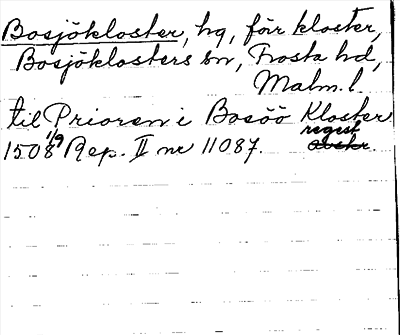 Bosjökloster, hg, förr kloster,
Bosjöklosters sn, Frosta hd,
Malm. l.
til Prioren i Bosöö Kloster
1508 1/9 Rep. II nr 11087. regest